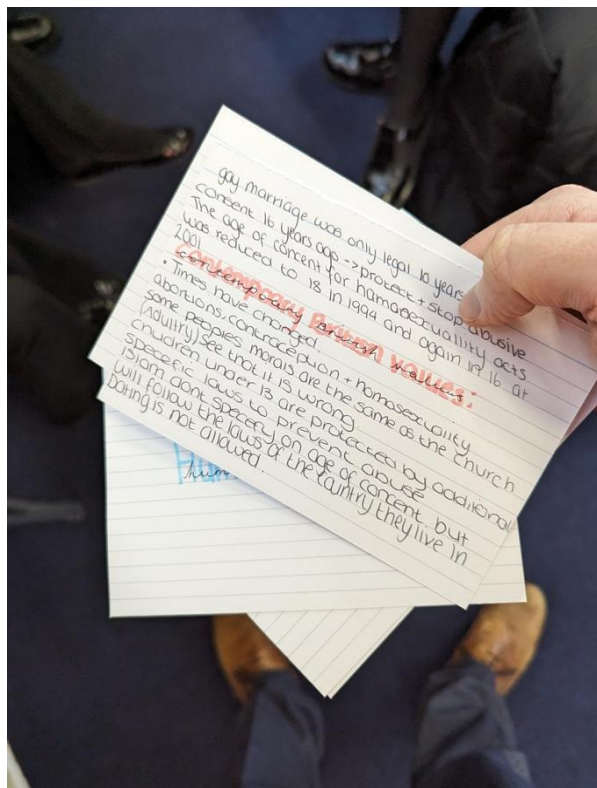 gay marriage was only legal 10 years
consent 16 years ago -> protect + stop abusive
The age of concent for hamosexuallity acts
was reduced to 18 in 1994 and again in 16 at
2001
contemporary British values:
• Times have changed
abortions, contraception + homosexuality
some peoples morals are the same as the church
(Adultry) see that it is wrong
Children under 13 are protected by additional
specefic laws to prevent abuse
Islam dont specery an age of concent but
will follow the laws of the cauntry they live in
dating is not allowed.
hum